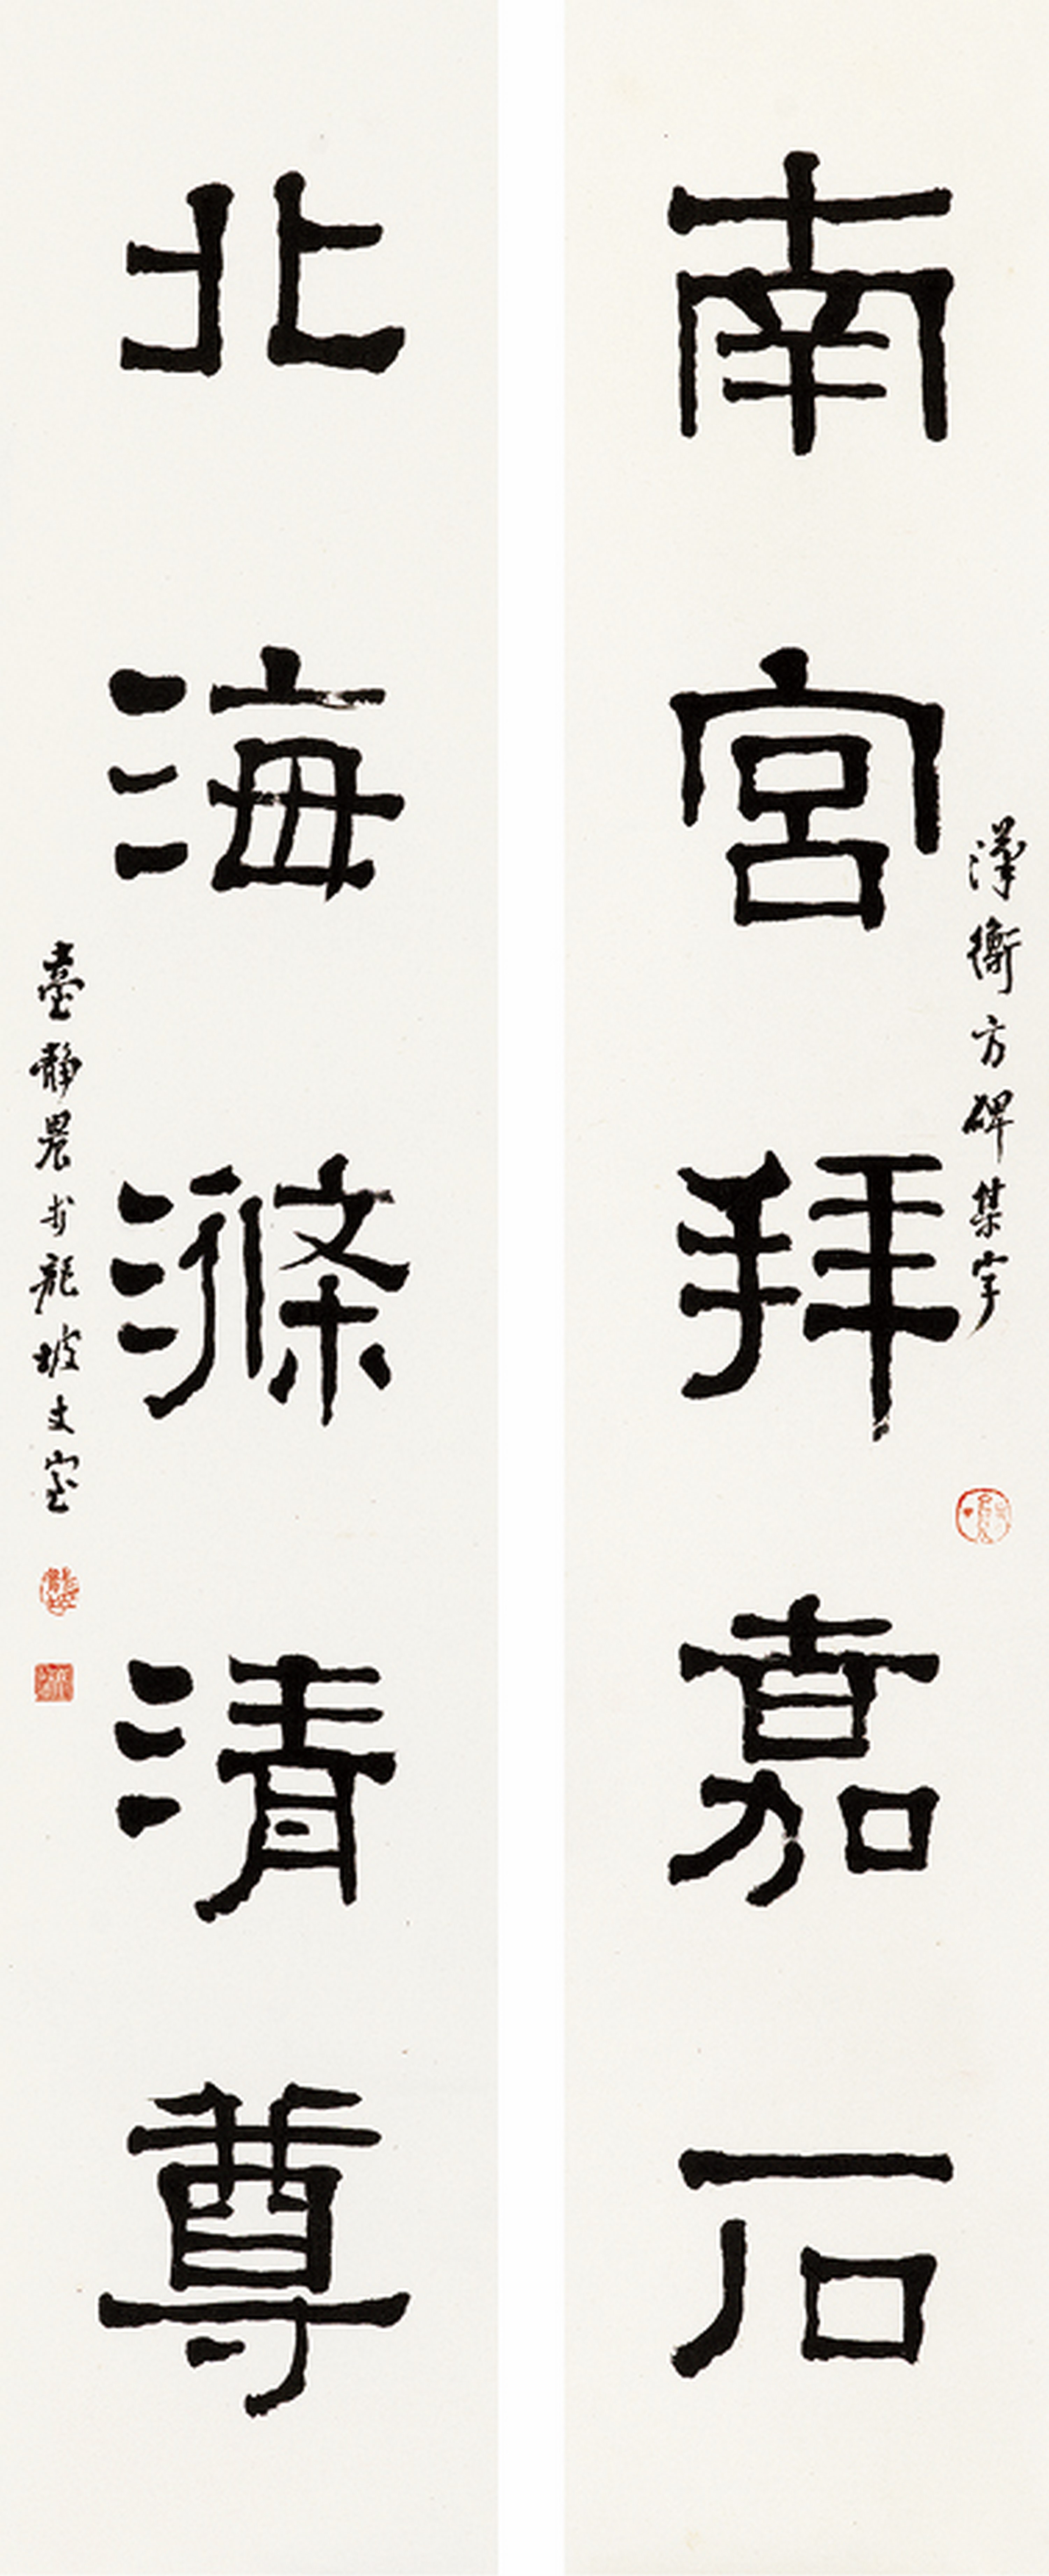 南宮拜嘉石
漢衡方碑集字
北海滌清尊
臺靜農於龍坡丈室